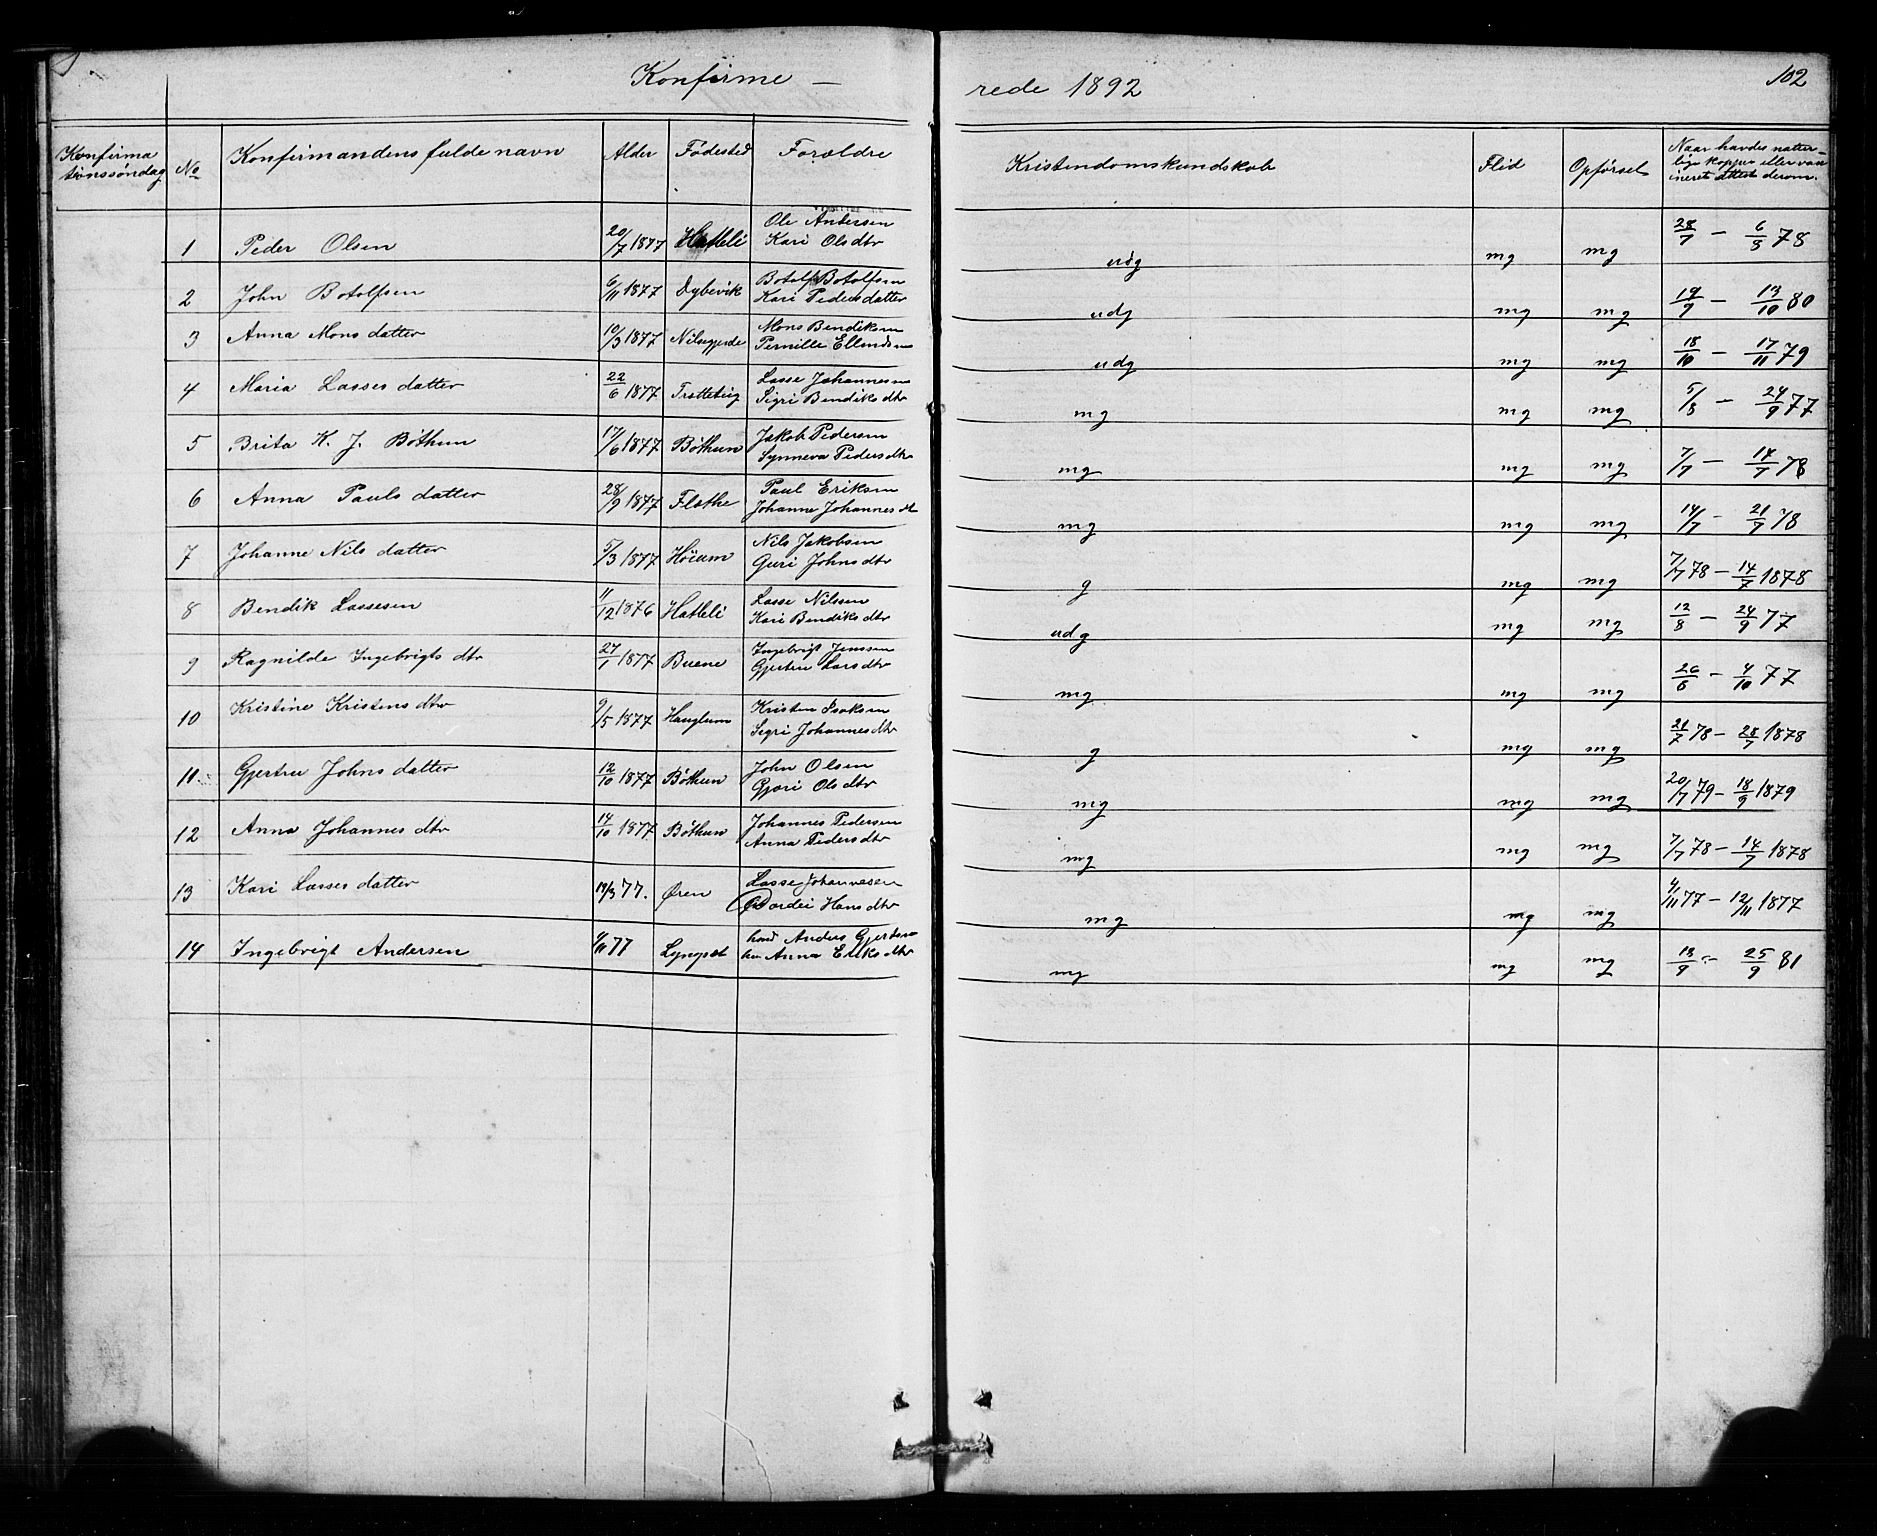 Konfirme — rede 1892 102
Konfirma tionssøndag No Konfirmandens fulde navn Alder Fødested Forældre Kristendomskundskab Flid Opførsel Naar havdes natter- lige kopper eller vac ineret attest derom.
1 Peder Olsen 20/7 1877 Hatleli Ole Andersen Kari Olsdtr udg mg mg 28/7 — 6/8 78
2 John Botolfsen 6/11 1877 Dybevik Botolf Botolfsen Kari Pedersdatter udg mg mg 19/9 — 13/10 80
3 Anna Mons datter 10/3 1877 Nilsegjerde Mons Bendiksen Pernille udg mg mg 18/10 — 17/11 79
4 Maria Lasses datter 22/6 1877 Lasse Johannesen Sigri Bendiks dtr mg mg mg 5/8 — 24/9 77
5 Brita K. J. Bøthun 17/6 1877 Bøthun Jakob Pedersen Synneva Pedersdtr mg mg mg 7/7 — 14/7 78
6 Anna Pauls datter 28/9 1877 Flothe Paul Eriksen Johanne Johannes dt mg mg mg 14/7 — 21/7 78
7 Johanne Nils datter 5/3 1877 Høium Nils Jakobsen Guri Johns dtr g mg mg 7/7 78 — 14/7 1878
8 Bendik Lassesen 11/12 1876 Hatleli Lasse Nilssen Kari Bendiks dtr udg mg mg 12/8 — 24/9 77
9 Ragnilde Ingebrigts dtr 27/1 1877 Buene Ingebrigt Jenssen Gjertru Lars dtr mg mg mg 26/8 — 4/10 77
10 Kristine Kristens dtr 9/5 1877 Hauglum Kristen Isaksen Sigri Johannes dtr g mg mg 21/7 78 — 28/7 1878
11. Gjertru Johns datter 12/10 1877 Bøthun John Olsen Gjøri Ols dtr mg mg mg 20/7 79 — 18/9 1879
12 Anna Johannes dtr 14/10 1877 Bøthun Johannes Pedersen Anna Peders dtr mg mg mg 7/7 78 — 14/7 1878
13 Kari Lasses datter 18/3 77. Øren Lasse Johannesen Hans dtr mg mg mg 4/11 77 — 12/11 1877
14 Ingebrigt Andersen 77 Lyngset Anders Gjertsen Anna Eriks dtr mg mg mg 13/9 — 25/9 81